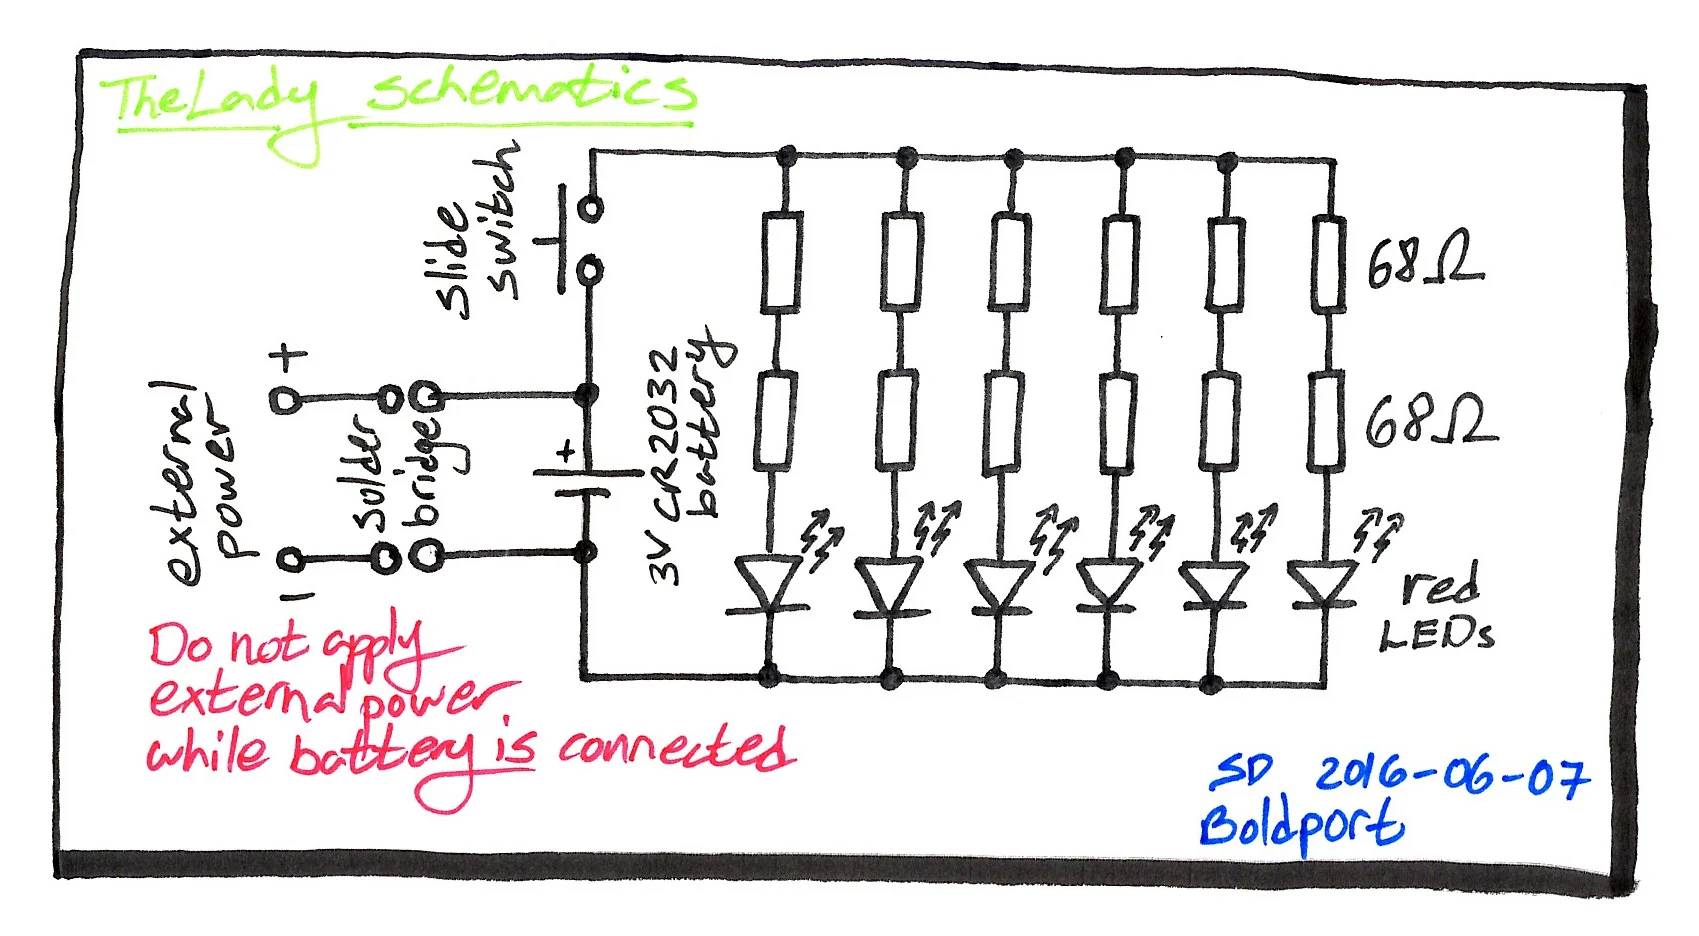 TheLady schematics
slide
switch
+
external
power
solder
bridge
+
3V CR2032
battery
-
68Ω
68Ω
red
LEDs
Do not apply
external power
while battery is connected
SD 2016-06-07
Boldport